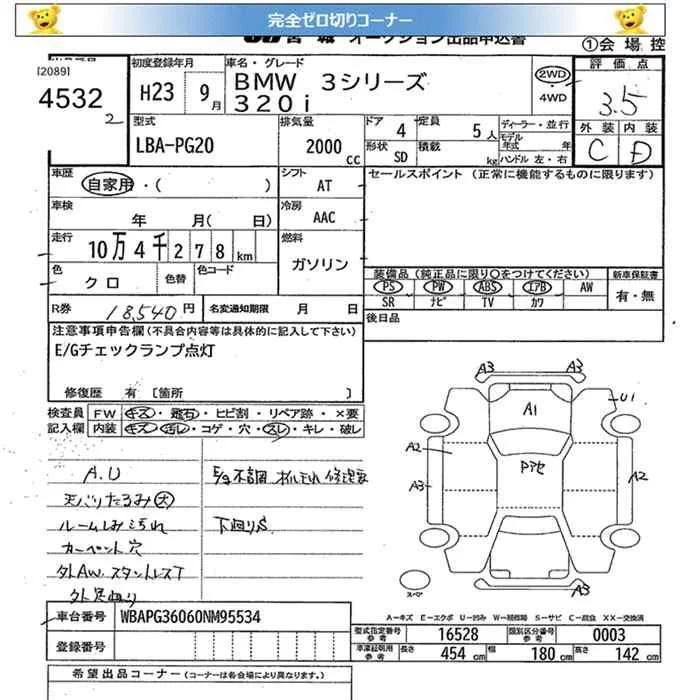 完全ゼロ切りコーナー
宮城 オークション出品申込書
①会場控
[2089]
4532
2
初度登録年月
H23 9月
車名・グレード
BMW 3シリーズ
320i
2WD
・4WD
評価点
3.5
外装 内装
C D
型式
LBA-PG20
排気量
2000cc
ドア 4
定員 5人
形状 SD
積載 kg
ディーラー・並行
モデル年式 年式
ハンドル 左・右
車歴
自家用・( )
シフト AT
セールスポイント (正常に機能するものに限ります)
車検
年 月( 日)
冷房 AAC
走行
10万4千278km
燃料 ガソリン
色 クロ
色替
色コード
装備品(純正品に限り○をつけてください)
新車保証書
PS PW ABS エアB AW
SR ナビ TV カワ
有・無
R券 18,540円
名変通知期限 月 日
後日品
注意事項申告欄(不具合内容等は具体的に記入して下さい)
E/Gチェックランプ点灯
修復歴 有 [箇所 ]
検査員記入欄
FW キズ・飛石・ヒビ割・リペア跡・×要
内装 キズ・汚レ・コゲ・穴・スレ・キレ・破レ
A.U
天バリたるみ(大)
ルームしみ汚れ
カーペット穴
外AW スタットレスT
E/g不調 オイルもれ 修理要
下廻りS
A3 A3
A1
U1
A2
A3
A2
A3
スペア
A－キズ E－エクボ U－凹み W－補修跡 S－サビ C－腐食 XX－交換済
車台番号 WBAPG36060NM95534
登録番号
型式指定番号 参考 16528
類別区分番号 参考 0003
車庫証明用 参考 長さ 454cm 幅 180cm 高さ 142cm
希望出品コーナー(コーナーは各会場により異なります。)